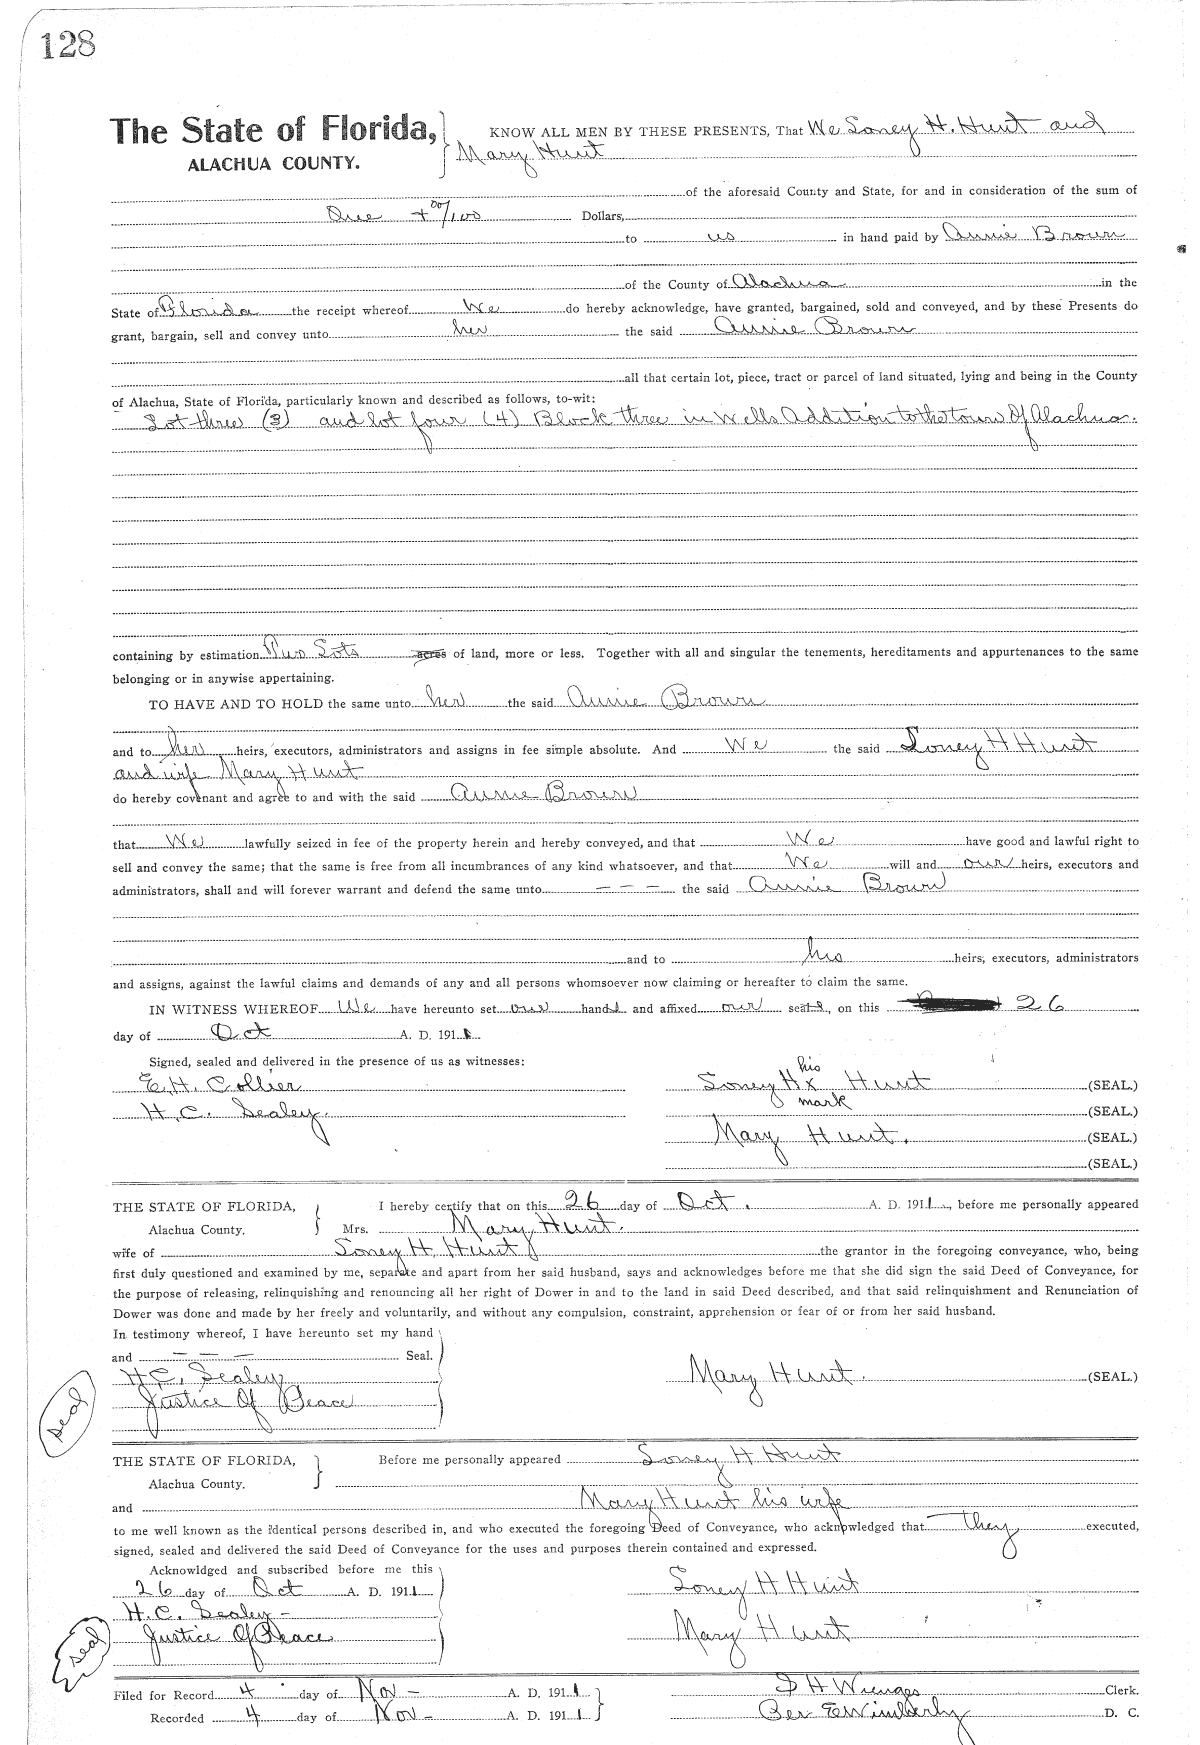 128
The State of Florida,
ALACHUA COUNTY.
KNOW ALL MEN BY THESE PRESENTS, That We Soney H. Hunt and
Mary Hunt
of the aforesaid County and State, for and in consideration of the sum of
One + 00/100 Dollars,
to us in hand paid by Annie Brown
of the County of Alachua in the
State of Florida the receipt whereof We do hereby acknowledge, have granted, bargained, sold and conveyed, and by these Presents do
grant, bargain, sell and convey unto her the said Annie Brown
all that certain lot, piece, tract or parcel of land situated, lying and being in the County
of Alachua, State of Florida, particularly known and described as follows, to-wit:
Lot three (3) and lot four (4) Block three in Wells Addition to the town Of Alachua.
containing by estimation Two Lots acres of land, more or less. Together with all and singular the tenements, hereditaments and appurtenances to the same
belonging or in anywise appertaining.
TO HAVE AND TO HOLD the same unto her the said Annie Brown
and to her heirs, executors, administrators and assigns in fee simple absolute. And We the said Soney H Hunt
and wife Mary Hunt
do hereby covenant and agree to and with the said Annie Brown
that We lawfully seized in fee of the property herein and hereby conveyed, and that We have good and lawful right to
sell and convey the same; that the same is free from all incumbrances of any kind whatsoever, and that We will and our heirs, executors and
administrators, shall and will forever warrant and defend the same unto - - - the said Annie Brown
and to his heirs, executors, administrators
and assigns, against the lawful claims and demands of any and all persons whomsoever now claiming or hereafter to claim the same.
IN WITNESS WHEREOF We have hereunto set our hands and affixed our seals, on this 26
day of Oct A. D. 1911
Signed, sealed and delivered in the presence of us as witnesses:
his
E. H. Collier Soney H x Hunt (SEAL.)
mark
H. C. Sealey. (SEAL.)
Mary Hunt. (SEAL.)
(SEAL.)
THE STATE OF FLORIDA, I hereby certify that on this 26 day of Oct. A. D. 1911, before me personally appeared
Alachua County. Mrs. Mary Hunt.
wife of Soney H. Hunt the grantor in the foregoing conveyance, who, being
first duly questioned and examined by me, separate and apart from her said husband, says and acknowledges before me that she did sign the said Deed of Conveyance, for
the purpose of releasing, relinquishing and renouncing all her right of Dower in and to the land in said Deed described, and that said relinquishment and Renunciation of
Dower was done and made by her freely and voluntarily, and without any compulsion, constraint, apprehension or fear of or from her said husband.
In testimony whereof, I have hereunto set my hand
and - - - Seal.
H. C. Sealey Mary Hunt. (SEAL.)
Justice Of Peace
seal
THE STATE OF FLORIDA, Before me personally appeared Soney H Hunt
Alachua County.
and Mary Hunt his wife
to me well known as the identical persons described in, and who executed the foregoing Deed of Conveyance, who acknowledged that they executed,
signed, sealed and delivered the said Deed of Conveyance for the uses and purposes therein contained and expressed.
Acknowldged and subscribed before me this
26 day of Oct A. D. 1911 Soney H Hunt
H. C. Sealey -
Justice Of Peace Mary Hunt
seal
Filed for Record 4 day of Nov - A. D. 1911 S H Wienges Clerk.
Recorded 4 day of Nov - A. D. 1911 Per E Wimberly D. C.